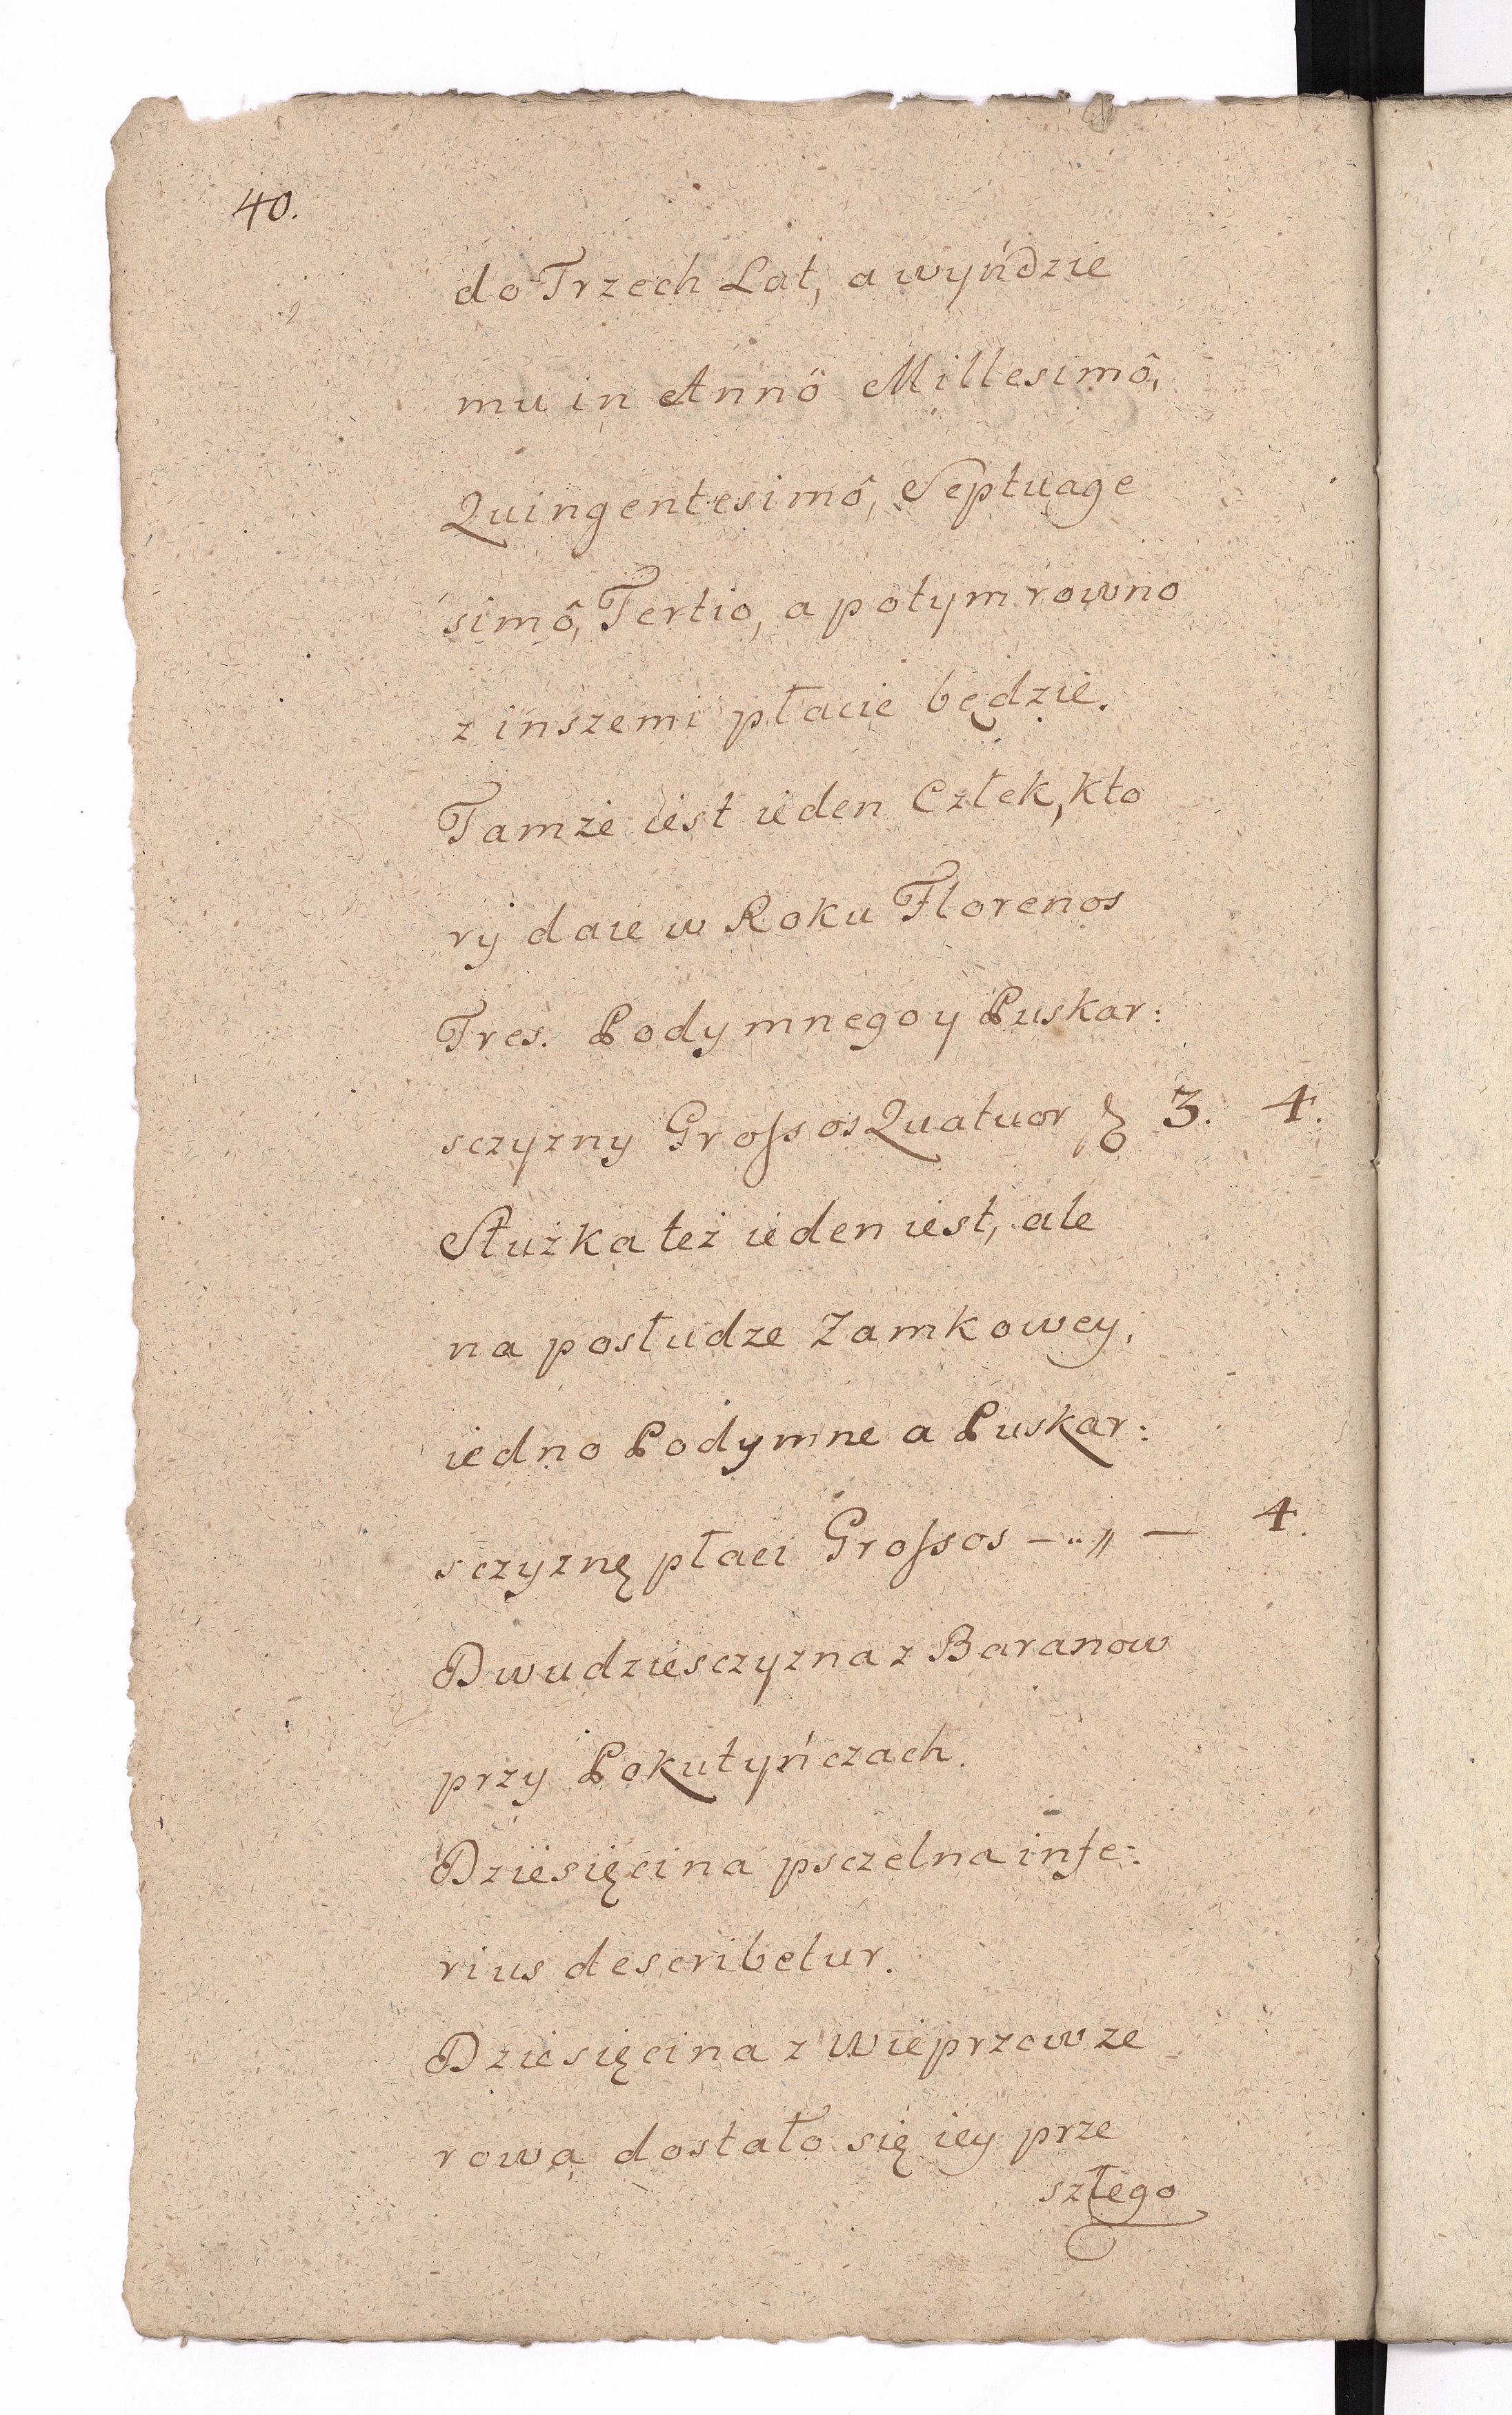 40.
do Trzech Lat, a wyńdzie
mu in Annô Millesimô,
Quingentesimô, Septuage
simô, Tertio, a potym rowno
z inszemi płacic będzie.
Tamże iest ieden Człek, kto
ry daie w Roku Florenos
Tres. Podymnego y Puskar:
sczyzny Grossos Quatuor 3. 4.
Służka też ieden iest, ale
na posłudze Zamkowey,
iedno Podymne a Puskar:
sczyznę płaci Grossos — ..„ — 4.
Dwudziesczyzna z Baranow
przy Pokutyńczach.
Dziesięcina psczelna infe:
rius describetur.
Dziesięcina z Wieprzow ze
rową dostało się iey prze
szłego